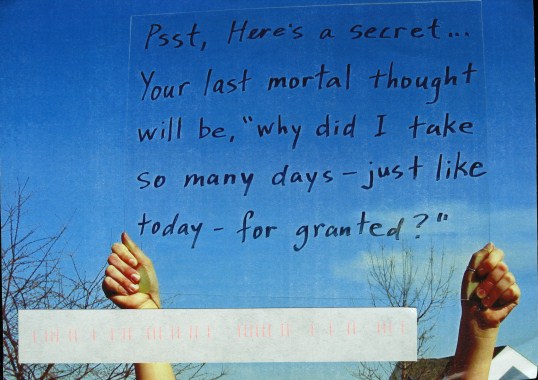 Psst, Here's a secret...
Your last mortal thought
will be, "why did I take
so many days - just like
today - for granted?"